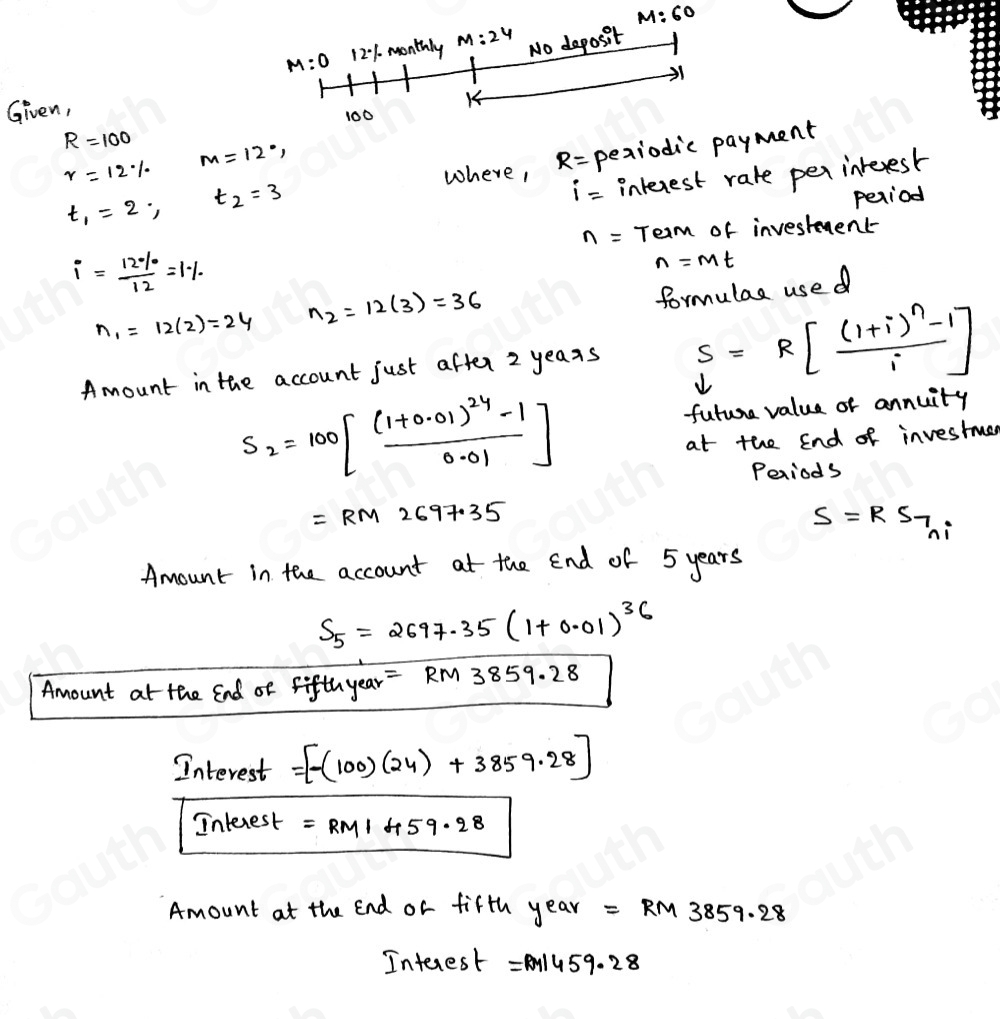 M:0 12% monthly M:24 No deposit M:60
100
Given,
R = 100
r = 12% m = 12,
t₁ = 2; t₂ = 3
where, R = periodic payment
i = interest rate per interest period
n = Term of investment
n = mt
i = 12%/12 = 1%
n₁ = 12(2) = 24 n₂ = 12(3) = 36
formulae used
S = R[((1+i)ⁿ-1)/i]
↓
future value of annuity
at the End of investmen
Periods
S = R S┐ni
Amount in the account just after 2 years
S₂ = 100[((1+0.01)²⁴-1)/0.01]
= RM 2697.35
Amount in the account at the End of 5 years
S₅ = 2697.35 (1+0.01)³⁶
Amount at the End of fifth year = RM 3859.28
Interest = [-(100)(24) + 3859.28]
Interest = RM 1459.28
Amount at the End of fifth year = RM 3859.28
Interest = RM1459.28
Gauth